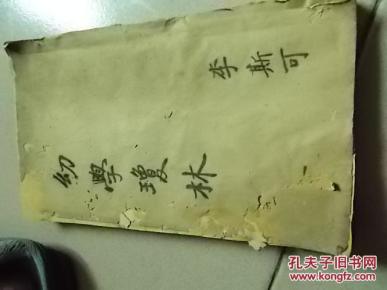 幼學瓊林
李斯可
孔夫子旧书网
www.kongfz.com